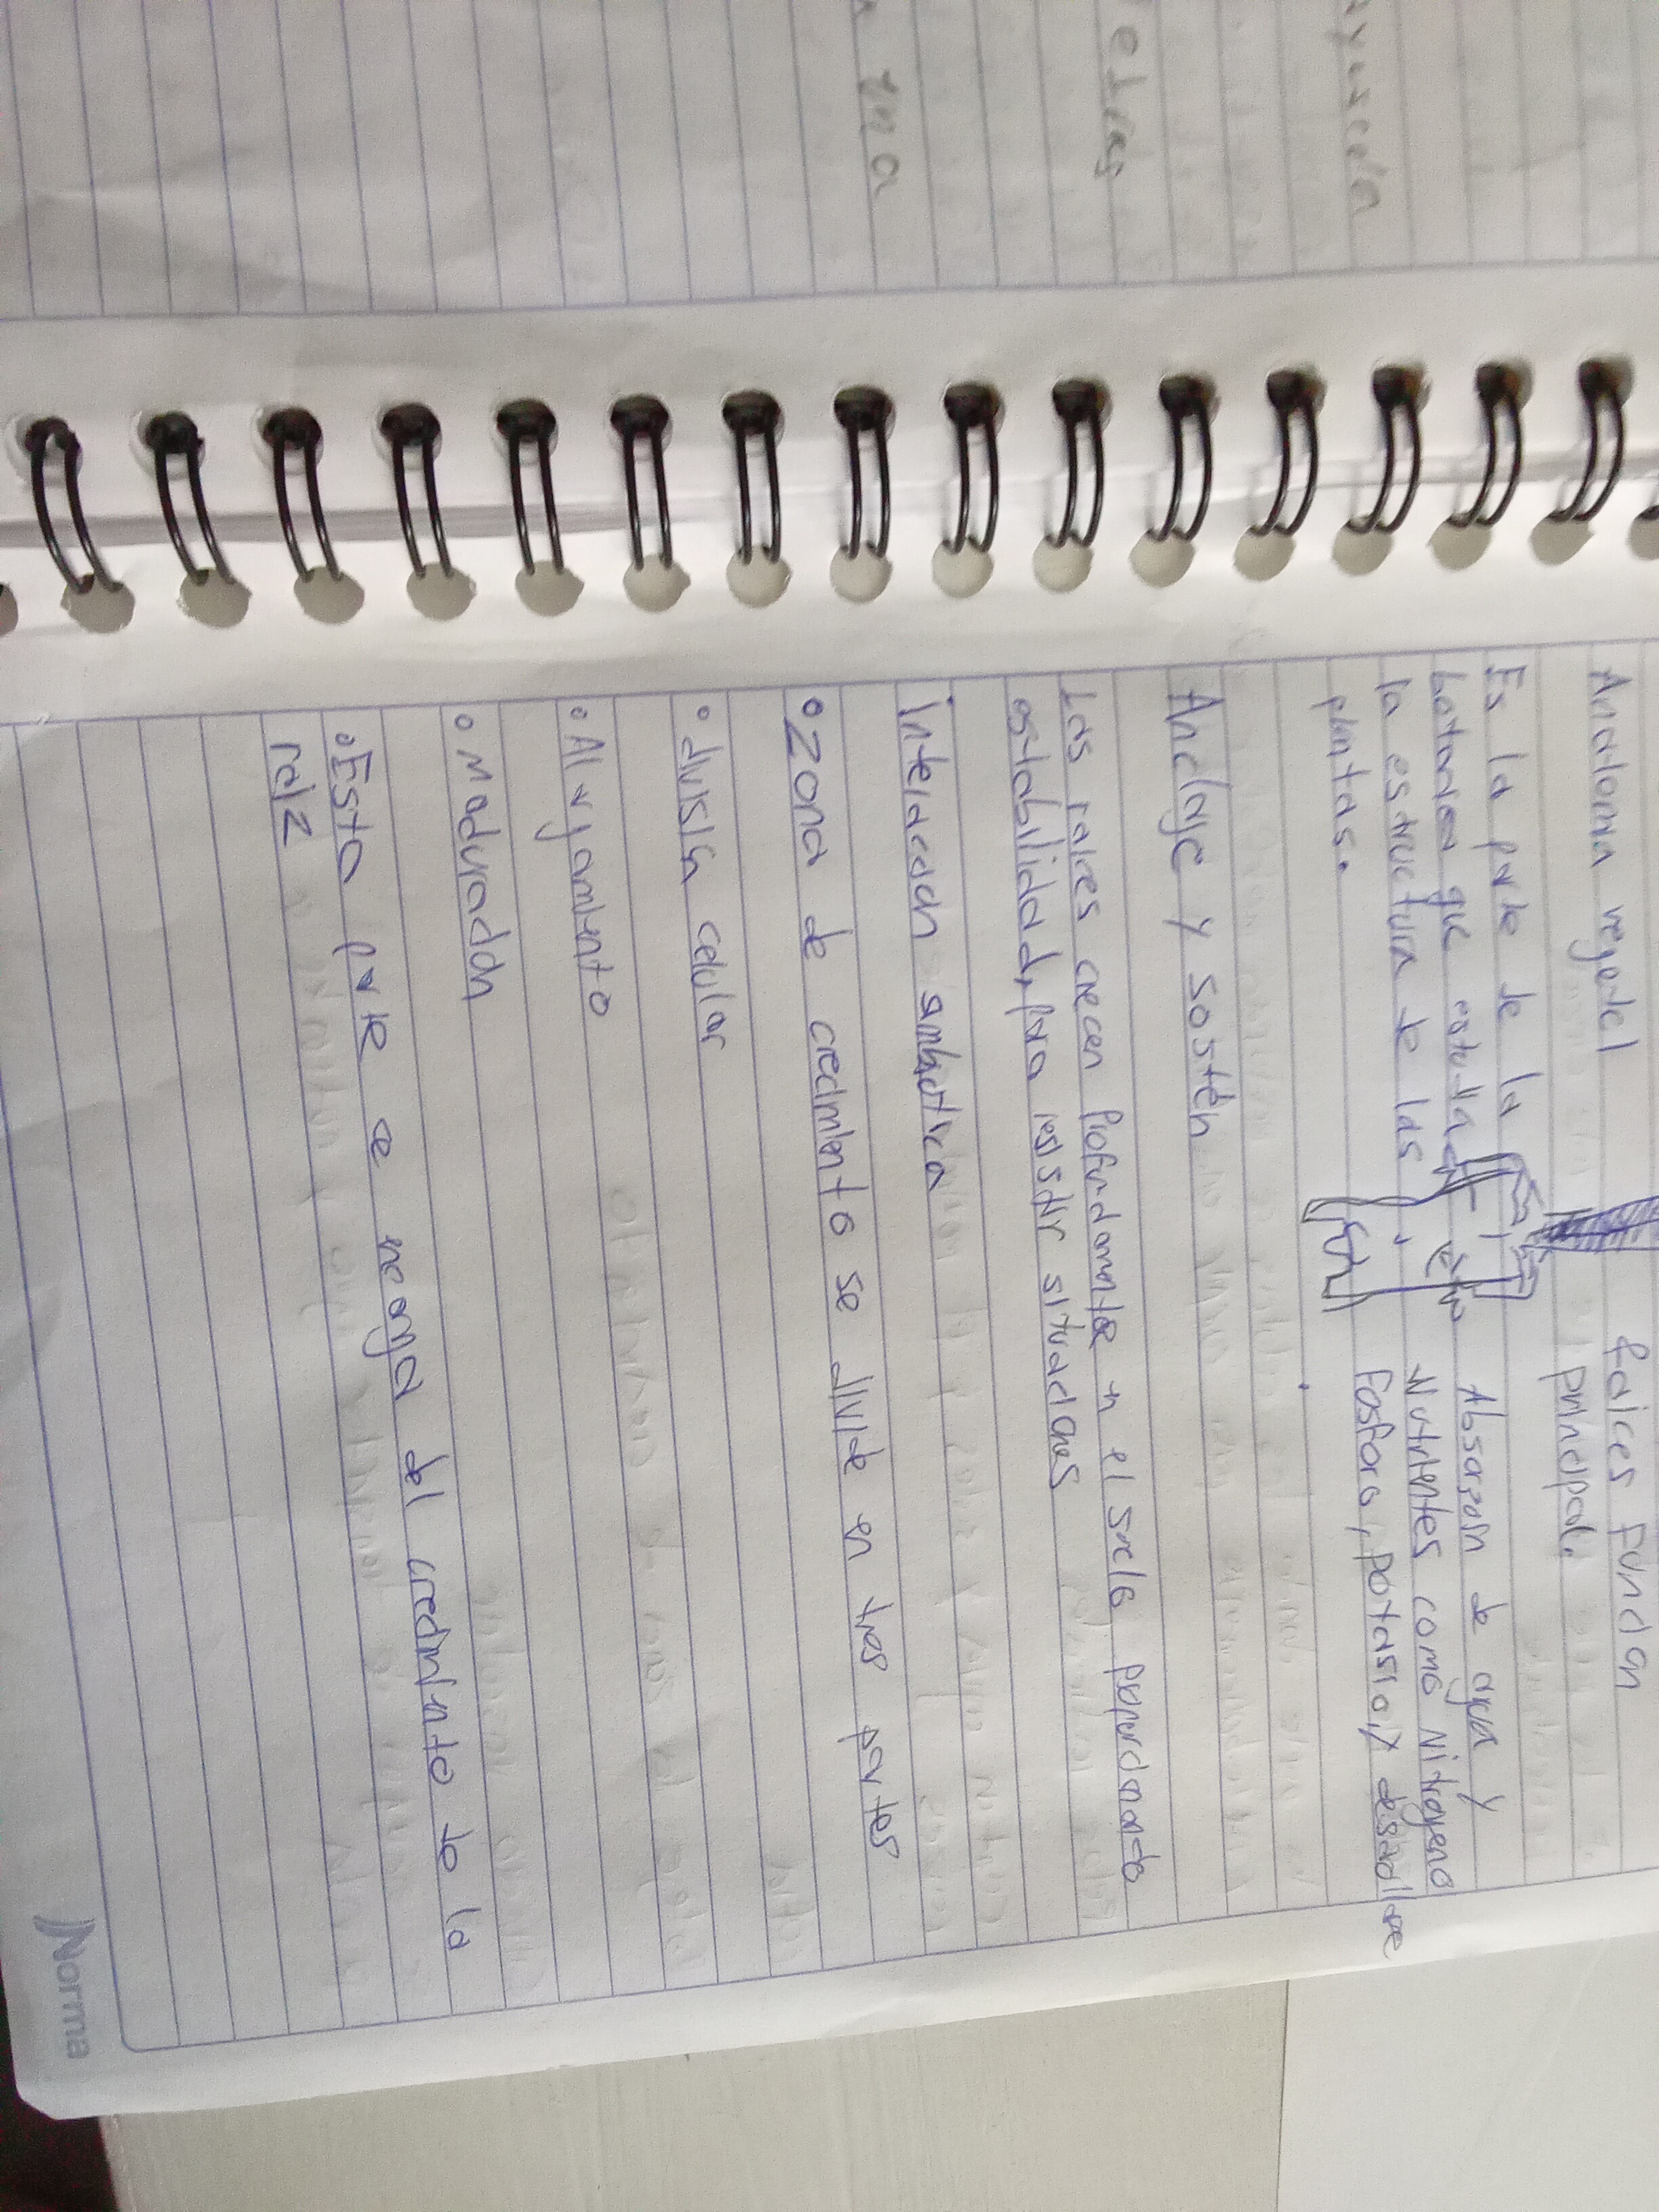 ayuscula
letras
una
Anatomia vegetal
Es la parte de la
botanica que estudia
la estructura de las
plantas.
Raices funcion
principal.
Absorsoin de agua y
Nutrientes como Nitrogeno
Fosforo, potasio, y
Anclaje y sosten
Las raices crecen Profundamente en el suelo
estabilidad, para resistir situaciones
interaccion simbiotica
• Zona de crecimiento se divide en tres partes
• division celular
• Alargamiento
• Maduracion
• Esta parte se encarga del crecimiento de la
raiz
Norma